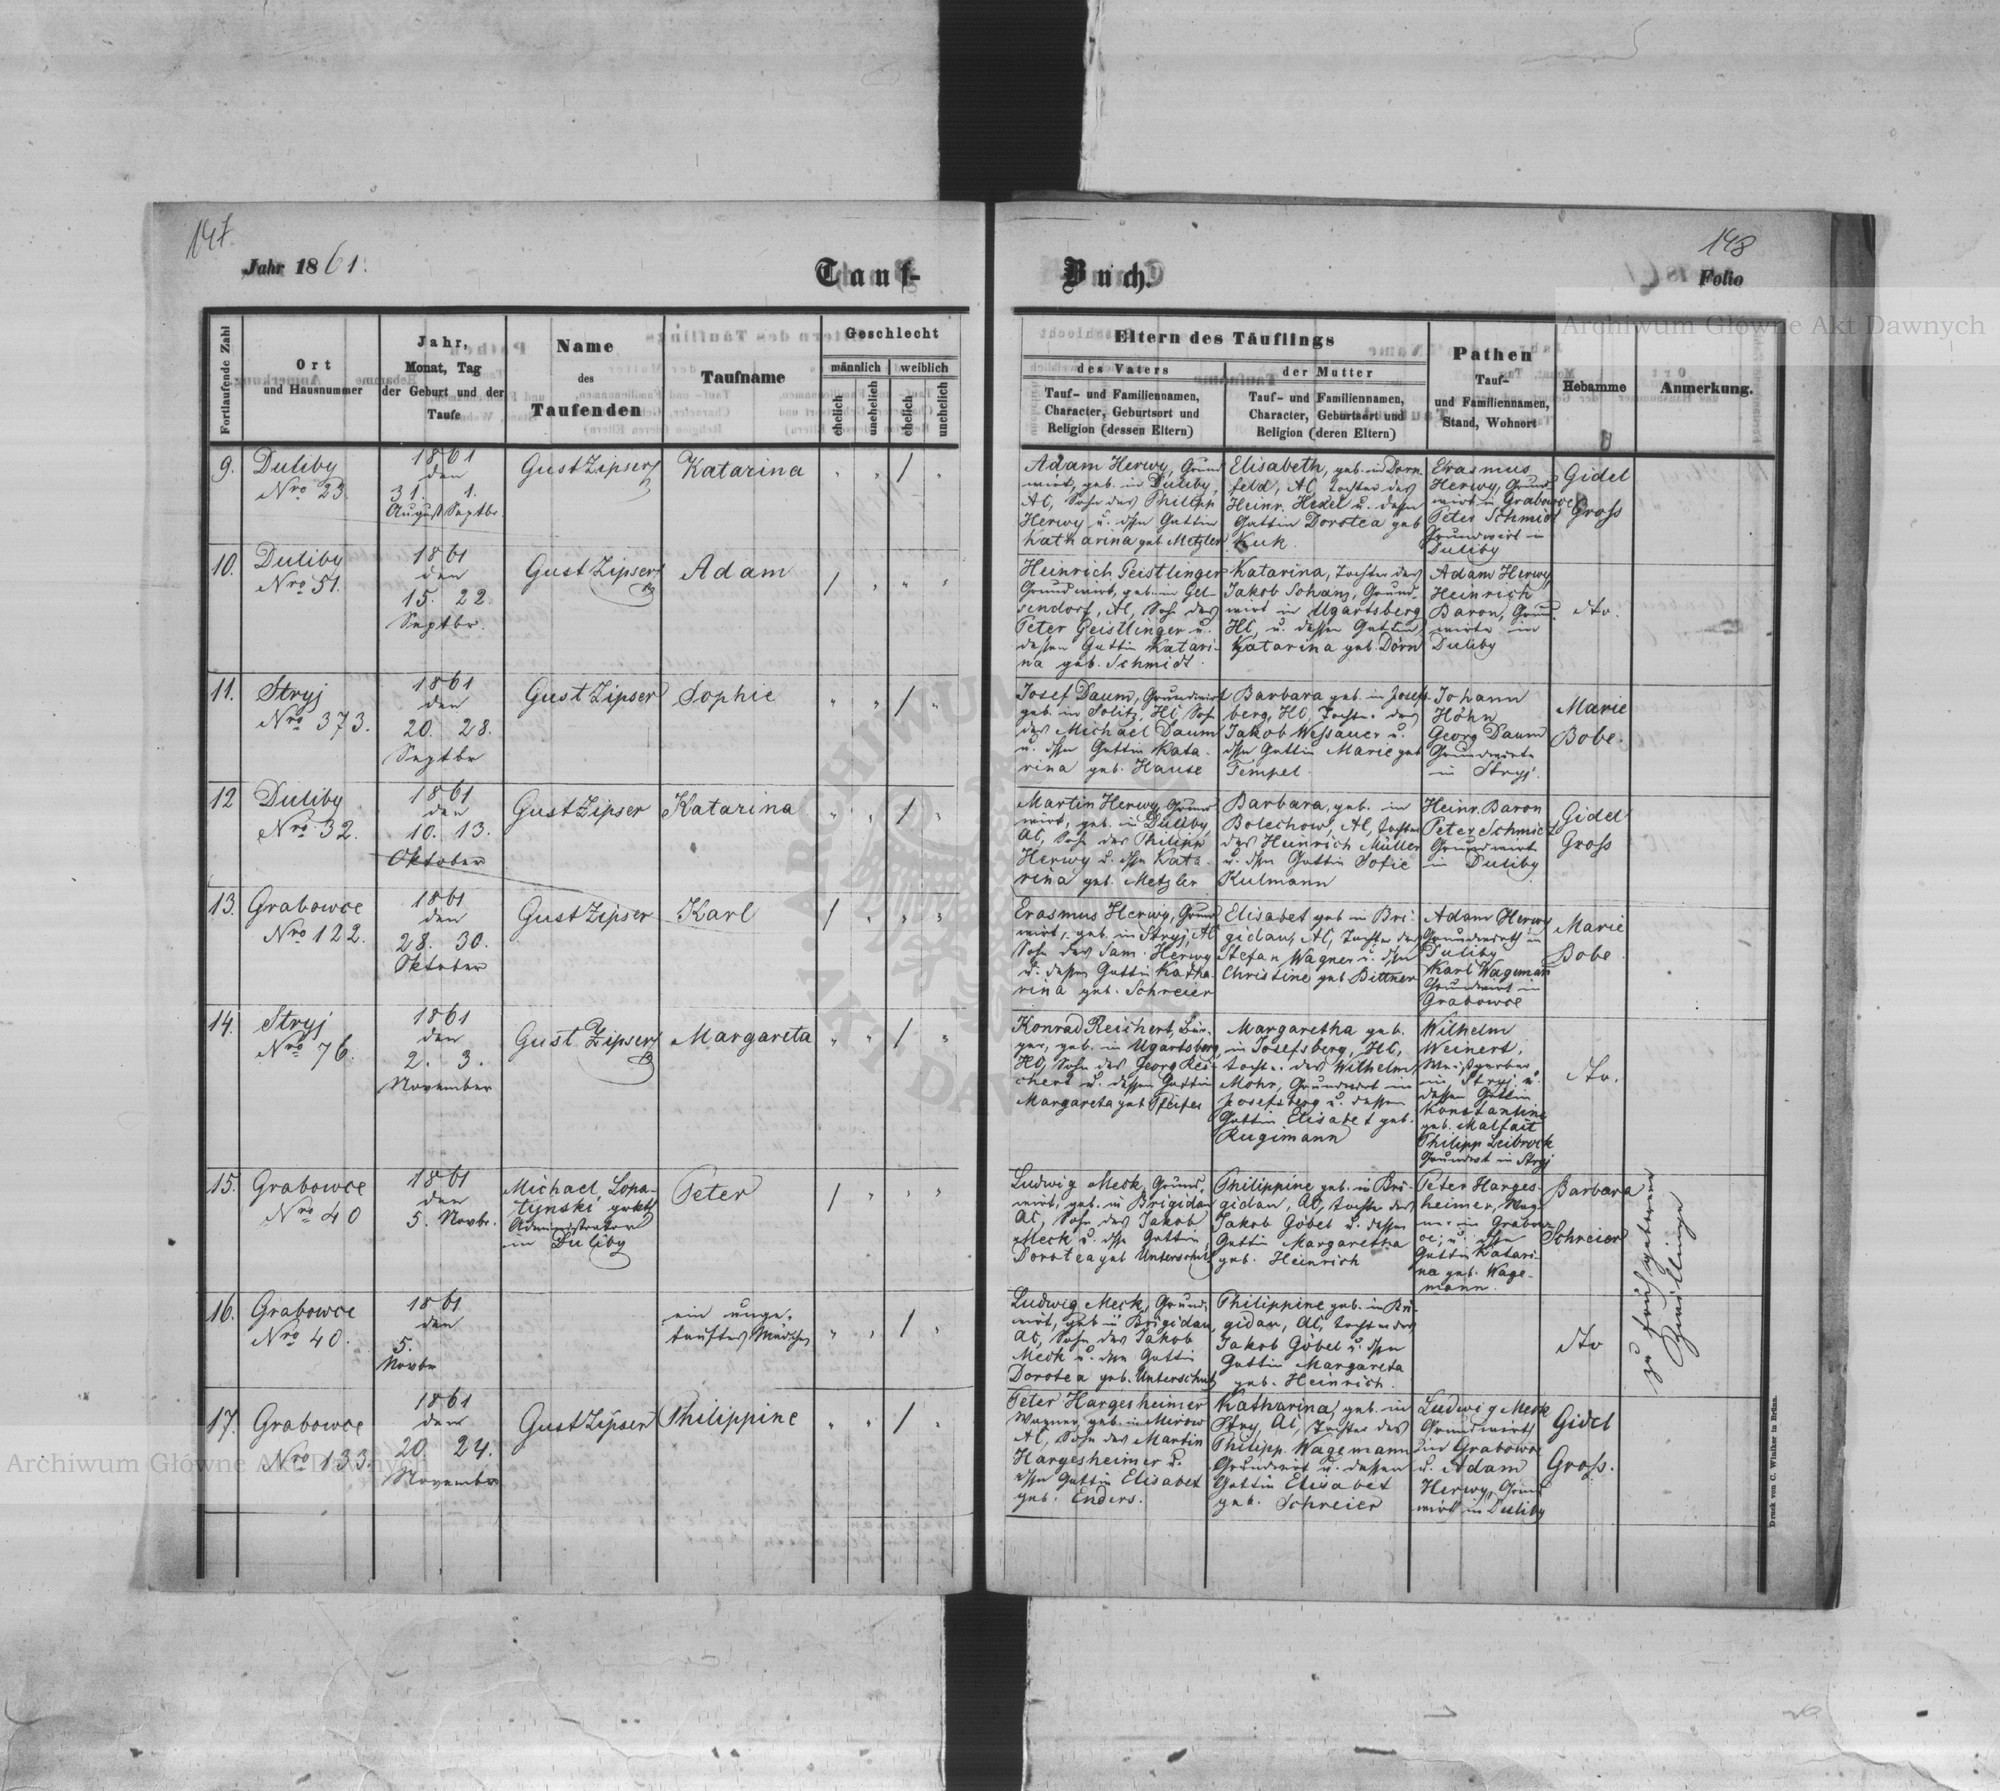 147.
148
Jahr 1861.
Tauf-
Buch.
Folio
Fortlaufende Zahl
Ort
und Hausnummer
Jahr,
Monat, Tag
der Geburt und der
Taufe
Name
des
Taufenden
Taufname
Geschlecht
männlich
weiblich
ehelich
unehelich
ehelich
unehelich
Eltern des Täuflings
des Vaters
Tauf- und Familiennamen,
Character, Geburtsort und
Religion (dessen Eltern)
der Mutter
Tauf- und Familiennamen,
Character, Geburtsort und
Religion (deren Eltern)
Pathen
Tauf-
und Familiennamen,
Stand, Wohnort
Hebamme
Anmerkung.
9.
Duliby
Nro 23.
1861
den
31. 1.
August Septbr.
Gust Zipser
Katarina
Adam Herwy, Grund
wirt, geb. in Duliby,
AC, Sohn des Philipp
Herwy u. dssn Gattin
Katharina geb. Metzler
Elisabeth, geb. in Dorn
feld, AC, Tochter des
Heinr. Hexel u. dessn
Gattin Dorotea geb
Kuk.
Erasmus
Herwy, Grund
wirt in Grabowce
Peter Schmidt
Grundwirt in
Duliby
Gidel
Gross
10.
Duliby
Nro 51.
1861
den
15. 22.
Septbr.
Gust Zipser
Adam
Heinrich Geistlinger
Grundwirt, geb. in Gel-
sendorf, AC, Sohn des
Peter Geistlinger u.
dessen Gattin Katari-
na geb. Schmidt.
Katarina, Tochter des
Jakob Johanz, Grund-
wirt in Ugartsberg
HC, u. dessen Gattin
Katarina geb. Dörn
Adam Herwy
Heinrich
Baron, Grund
wirte in
Duliby
dto.
11.
Stryj
Nro 373.
1861
den
20. 28.
Septbr
Gust Zipser
Sophie
Josef Daum, Grundwirt
geb. in Solitz, HC, Sohn
des Michael Daum
u. dssn Gattin Kata-
rina geb. Hause
Barbara geb. in Josefs-
berg, HC, Tochter des
Jakob Wessauer u.
dssn Gattin Marie geb
Tempel.
Johann
Höhn
Georg Daum
Grundwirte
in Stryj.
Marie
Bobe.
12
Duliby
Nro 32.
1861
den
10. 13.
Oktober
Gust Zipser
Katarina
Martin Herwy, Grund
wirt, geb. in Duliby,
AC, Sohn des Philipp
Herwy u. dssn Kata-
rina geb. Metzler
Barbara, geb. in
Bolechow, AC, Tochter
des Heinrich Müller
u. dssn Gattin Sofie
Kulmann
Heinr. Baron
Peter Schmidt
Grundwirte
in Duliby.
Gidel
Gross
13.
Grabowce
Nro 122.
1861
den
28. 30.
Oktober
Gust Zipser
Karl
Erasmus Herwy, Grund
wirt, geb. in Stryj, AC
Sohn des Sam. Herwy
u. dessen Gattin Katha-
rina geb. Schreier
Elisabet geb in Bri-
gidau, AC, Tochter des
Stefan Wagner u. dssn
Christine geb Bittner
Adam Herwy
Grundwirth in
Duliby
Karl Wageman
Grundwirt in
Grabowce
Marie
Bobe
14.
Stryj
Nro 76.
1861
den
2. 3.
November
Gust Zipser
Margareta
Konrad Reichert, Bür-
ger, geb. in Ugartsberg,
HC, Sohn des Georg Rei-
chert u. dessen Gattin
Margareta geb Pfeifer
Margaretha geb.
in Josefsberg, HC,
Tochter des Wilhelm
Mohr, Grundwirt in
Josefsberg u. dessen
Gattin Elisabet geb.
Rugimann
Wilhelm
Weinert,
Weißgerber
in Stryj u.
dessen Gattin
Konstantine
geb. Malfait
Philipp Leibrock
Grundwt in Stryj
dto.
15.
Grabowce
Nro 40
1861
den
5. Novbr.
Michael Lopa-
tynski grkth
Administrator
in Duliby
Peter
Ludwig Meck, Grund-
wirt, geb. in Brigidau
AC, Sohn des Jakob
Meck u. dssn Gattin
Dorotea geb Unterschutz
Philippine geb. in Bri-
gidau, AC, Tochter des
Jakob Göbel u. dessen
Gattin Margaretha
geb. Heinrich
Peter Harges-
heimer, Wag-
ner in Grabow-
ce, u. dssn
Gattin Katari-
na geb. Wage-
mann.
Barbara
Schreier
zu früh geborene
Zwillinge
16.
Grabowce
Nro 40.
1861
den
5.
Novbr
ein unge-
tauftes Mädchen
Ludwig Meck, Grund-
wirt, geb in Brigidau,
AC, Sohn des Jakob
Meck u. dssn Gattin
Dorotea geb. Unterschutz
Philippine geb. in Bri-
gidau, AC, Tochter des
Jakob Göbel u. dssn
Gattin Margareta
geb. Heinrich.
dto
17.
Grabowce
Nro 133.
1861
den
20. 24.
November
Gust Zipser
Philippine
Peter Hargesheimer
Wagner, geb. in Mirow
AC, Sohn des Martin
Hargesheimer u.
dssn Gattin Elisabet
geb. Enders.
Katharina, geb. in
Stry, AC, Tochter des
Philipp Wagemann
Grundwirt u. dessen
Gattin Elisabet
geb. Schreier
Ludwig Meck
Grundwirth
in Grabowce
u. Adam
Herwy, Grund
wirt in Duliby
Gidel
Gross.
Druck von C. Winiker in Brünn.
Archiwum Główne Akt Dawnych
Archiwum Główne Akt Dawnych